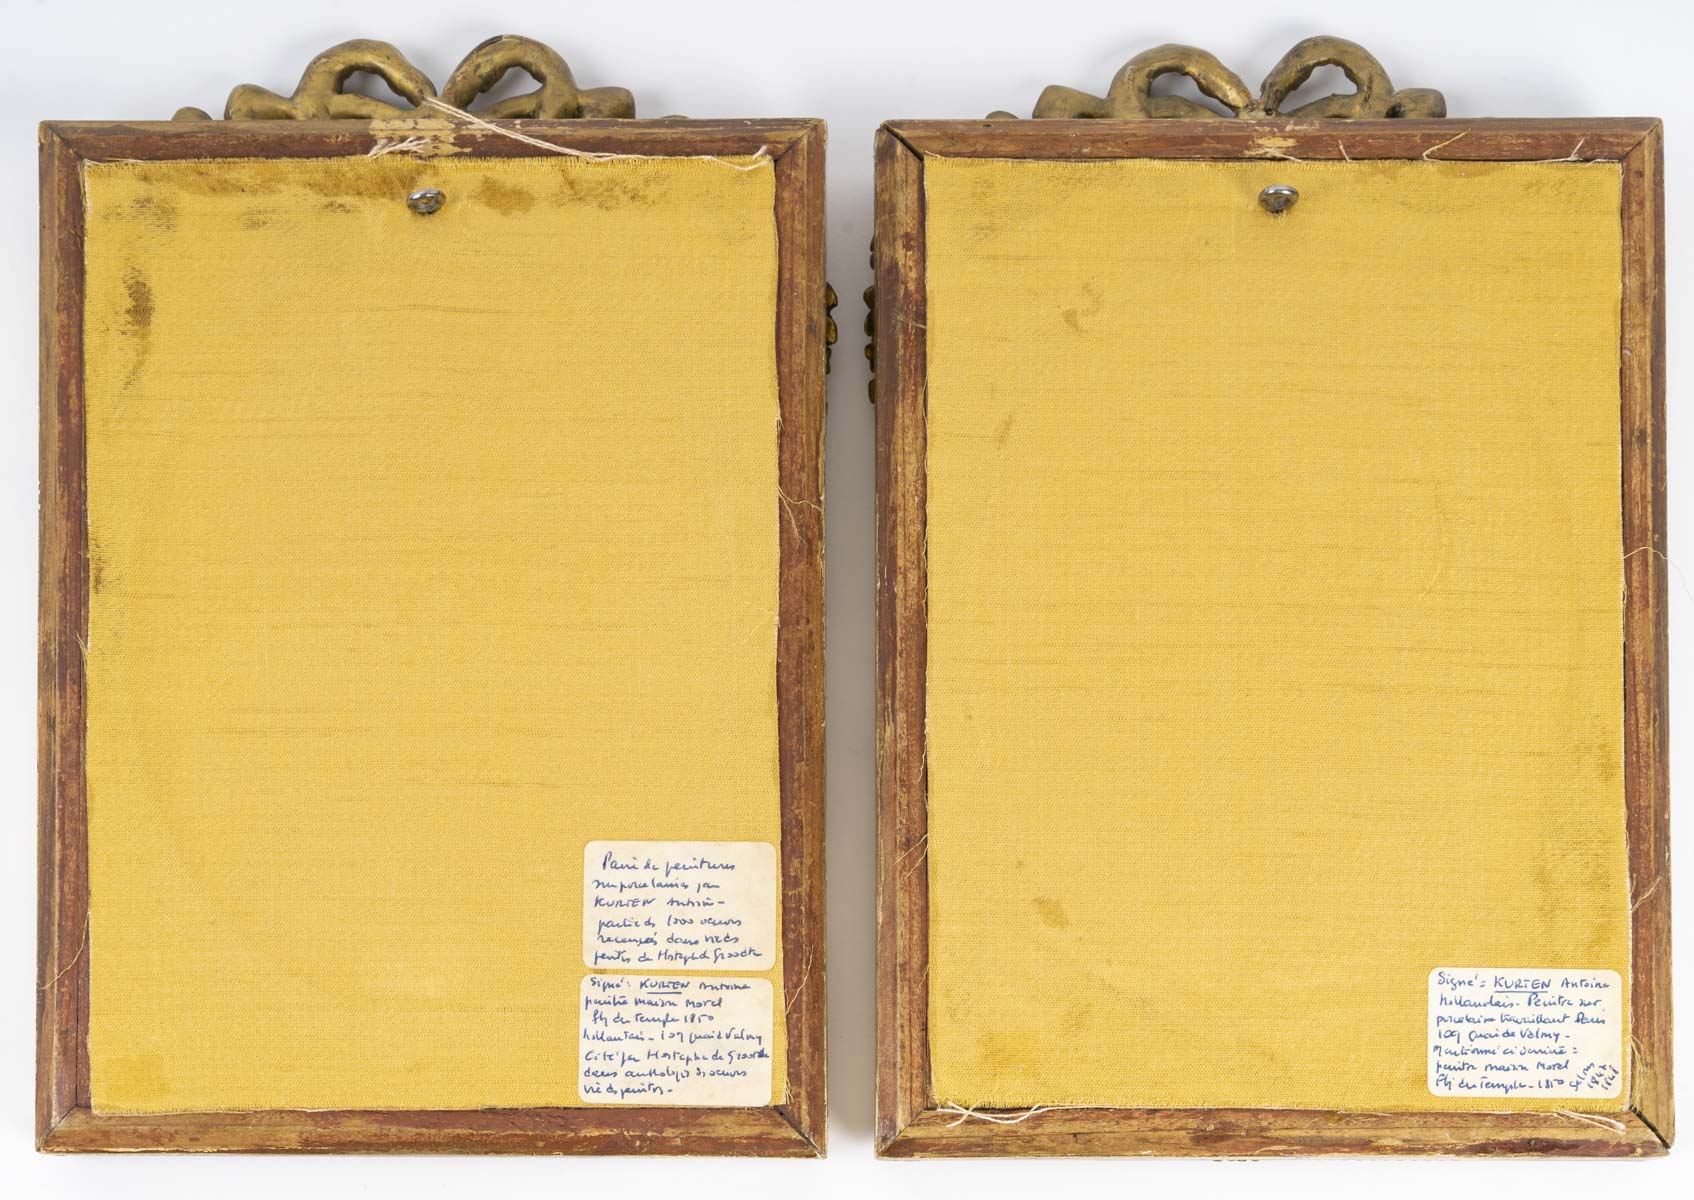 Paire de peintures
sur porcelaines par
KURTEN Antoine -
partie des 1000 oeuvres
recensées dans vie des
peintres de Hostephe de Groodte
Signé : KURTEN Antoine
peintre maison Morel
Fbg du Temple 1850
hollandais - 109 quai de Valmy
Cité par Hostephe de Groodte
dans anthologie oeuvres
vie des peintres -
Signé = KURTEN Antoine
hollandais - Peintre sur
porcelaine travaillant Paris
109 Quai de Valmy -
Mentionné ci derrière =
peintre maison Morel
Fbg du Temple - 1850
1847
1848